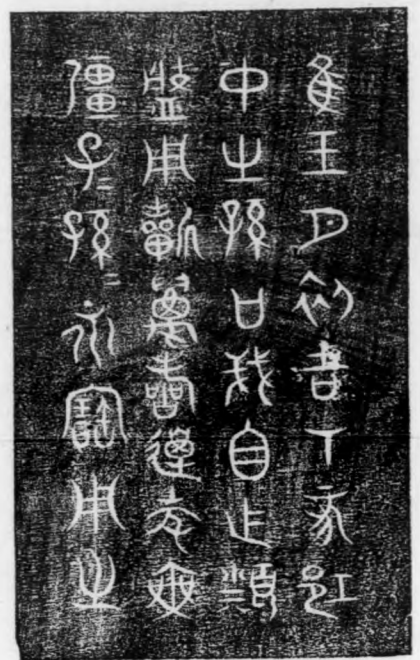 隹王月初吉丁亥邛
中之孫白戔自乍頮
盤用𣄨眉壽邁年無
疆子=孫=永寶用之